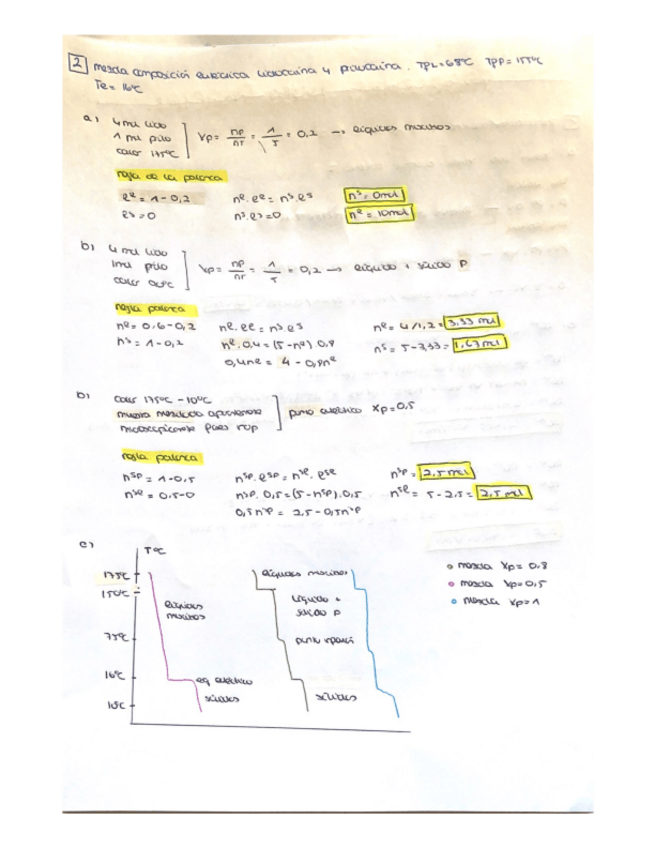 2 mezcla composición eutectica lidocaina y prilocaina. TPL=68ºC TPP=155ºC
Te= 16ºC
a) 4 mol lido
1 mol prilo
calor 175ºC
Xp= np/nT = 1/5 = 0,2 → líquidos miscibles
regla de la palanca
eº = 1-0,2 nº.eº = nˢ.eˢ nˢ = 0mol
eˢ = 0 nˢ.eˢ=0 nº = 10mol
b) 4 mol lido
1 mol prilo
calor
Xp= np/nT = 1/5 = 0,2 → líquido + sólido P
regla palanca
nº = 0,6-0,2 nº.eº = nˢ.eˢ nº = 4/1,2 = 3,33 mol
nˢ = 1-0,2 nº.0,4=(5-nº) 0,8 nˢ = 5-3,33 = 1,67 mol
0,4nº = 4 - 0,8nº
b) calor 175ºC - 10ºC
punto eutéctico Xp=0,5
regla palanca
nˢᵖ = 1-0,5 nˢᵖ.eˢᵖ = nˢº.eˢº nˢᵖ = 2,5 mol
nˢº = 0,5-0 nˢᵖ. 0,5=(5-nˢᵖ).0,5 nˢº = 5-2,5 = 2,5 mol
0,5nˢᵖ = 2,5-0,5nˢᵖ
c)
TºC
175ºC
150ºC
75ºC
16ºC
10ºC
líquidos miscibles
eq eutéctico
sólidos
líquidos miscibles
líquido + sólido P
sólidos
mezcla Xp= 0,8
mezcla Xp=0,5
mezcla Xp=1